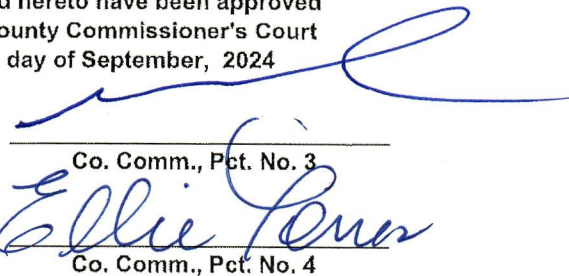 d hereto have been approved
ounty Commissioner's Court
day of September, 2024
Co. Comm., Pct. No. 3
Ellie Torres
Co. Comm., Pct. No. 4